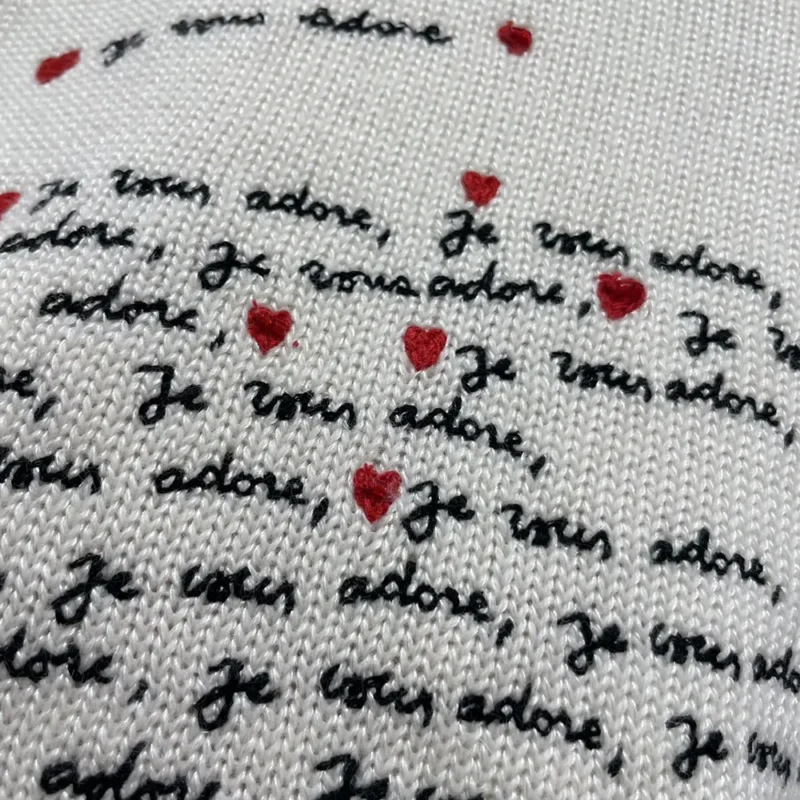 Je vous adore
Je vous adore, Je vous adore,
adore, Je vous adore, Je
adore, Je vous adore,
Je vous adore,
vous adore, Je vous adore,
Je vous adore, Je vous
Je vous adore, Je
adore Je